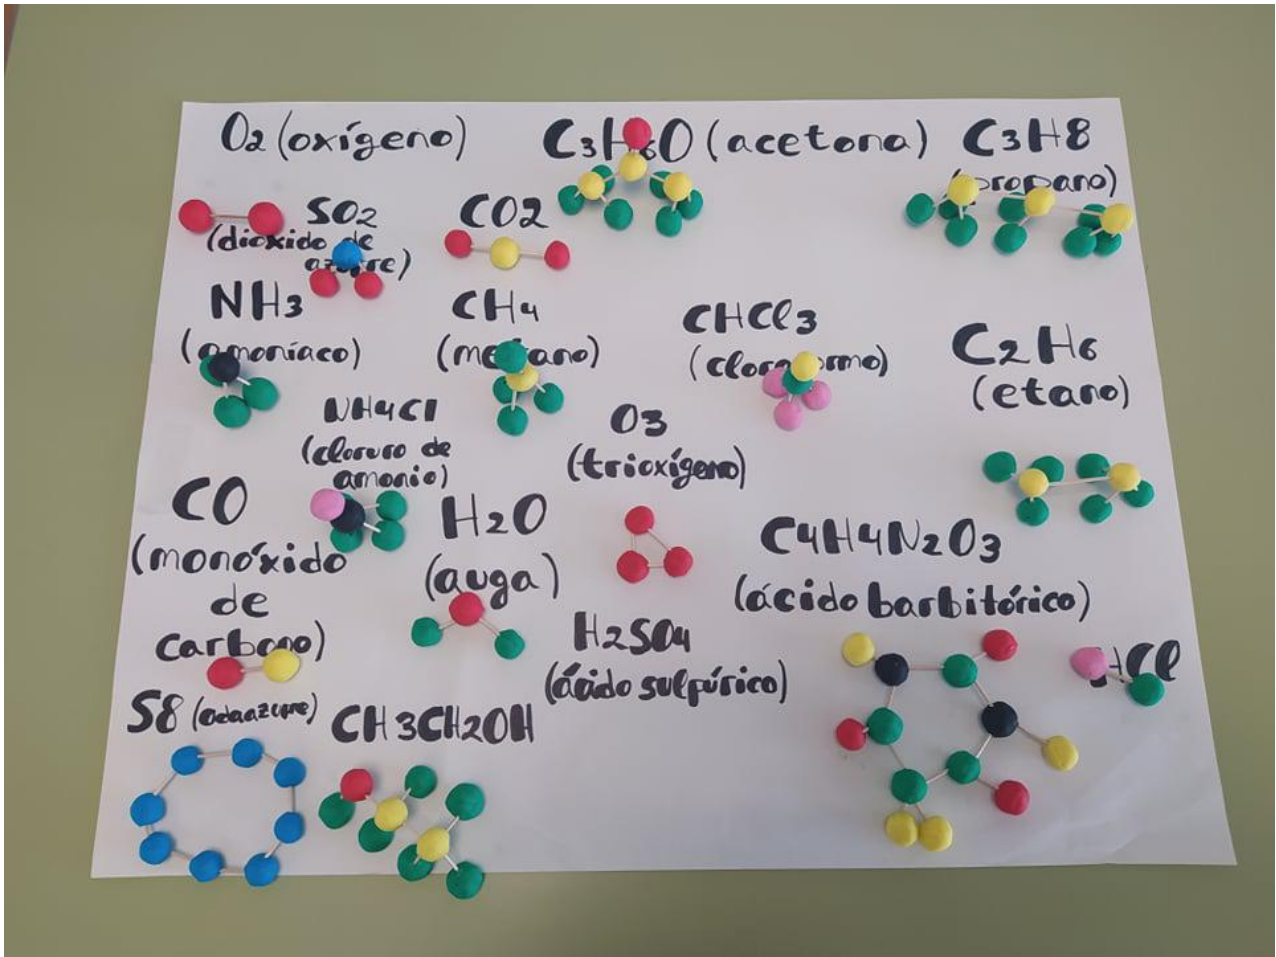 O2 (oxígeno)
C3H6O (acetona)
C3H8
(propano)
SO2
(dióxido de
azufre)
CO2
NH3
(amoníaco)
CH4
(metano)
CHCl3
(cloroformo)
C2H6
(etano)
NH4Cl
(cloruro de
amonio)
O3
(trioxígeno)
CO
(monóxido
de
carbono)
H2O
(auga)
C4H4N2O3
(ácido barbitórico)
H2SO4
(ácido sulfúrico)
HCl
S8
CH3CH2OH